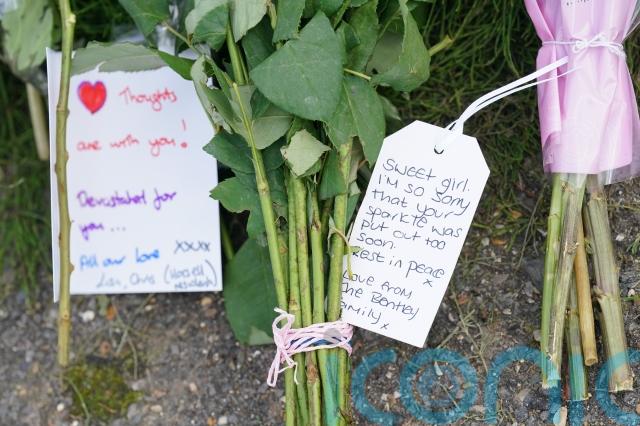 Thoughts
are with you!
Devastated for
you...
All our love xxxx
Sweet girl.
I'm so sorry
that your
sparkle was
put out too
soon.
Rest in peace
x
Love from
The Bentley
family x